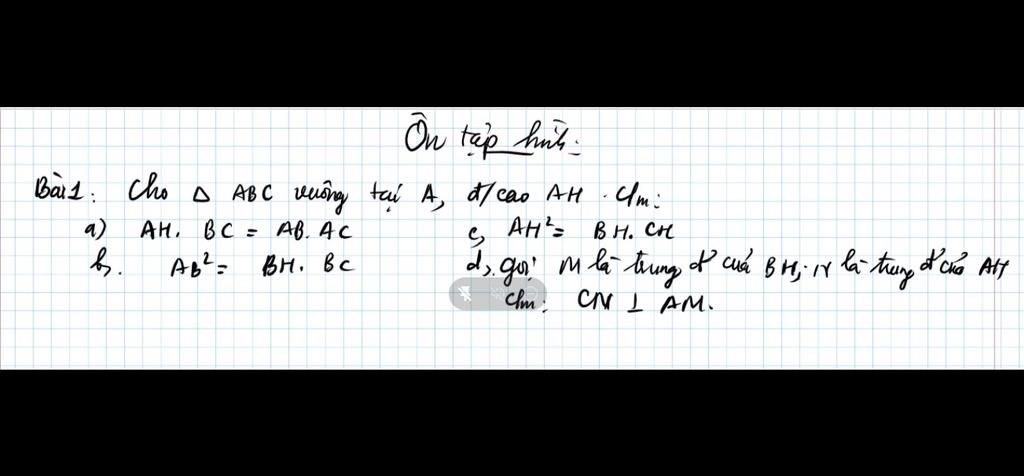 Ôn tập hình:
Bài 1: Cho Δ ABC vuông tại A, đ/cao AH. C/m:
a) AH. BC = AB. AC c, AH² = BH. CH
b. AB² = BH. BC d, gọi M là trung đ' của BH; N là trung đ' của AH
Chm: CN ⊥ AM.